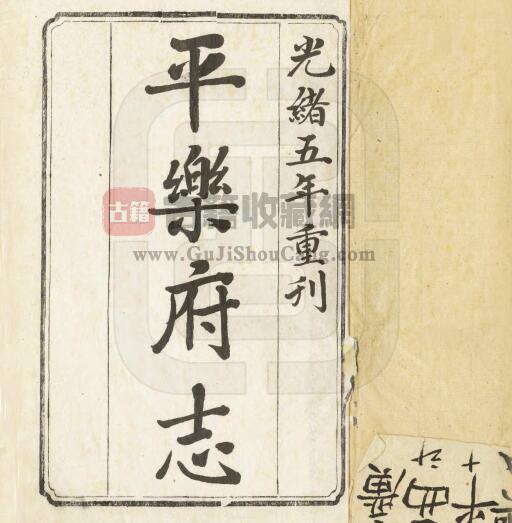 光緒五年重刊
平樂府志
古籍
古籍收藏網
www.GuJiShouCang.com